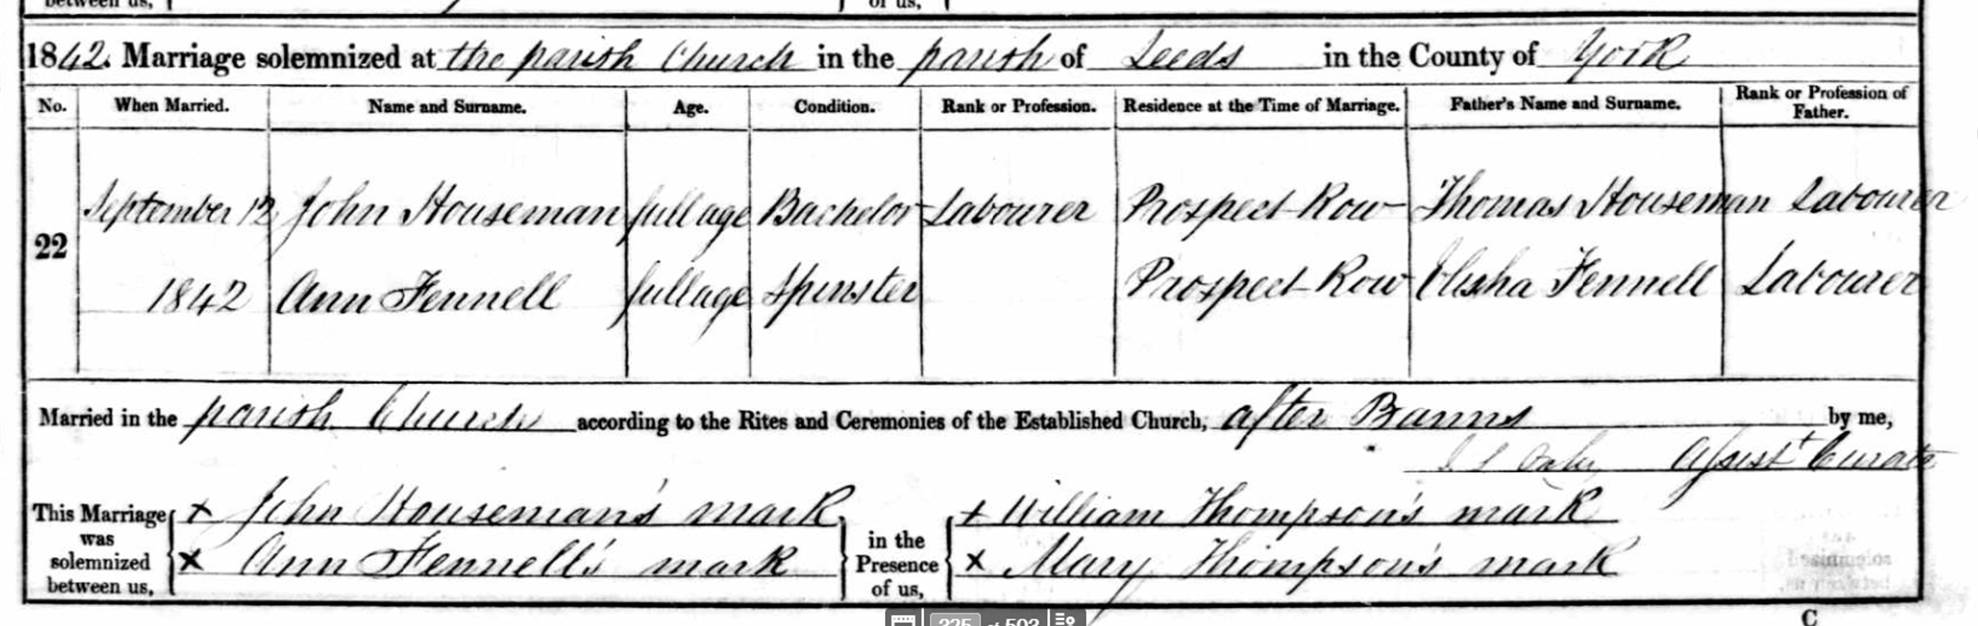 between us,
of us,
1842. Marriage solemnized at the parish Church in the parish of Leeds in the County of York
No. When Married. Name and Surname. Age. Condition. Rank or Profession. Residence at the Time of Marriage. Father's Name and Surname. Rank or Profession of Father.
September 12 John Houseman full age Bachelor Labourer Prospect Row Thomas Houseman Labourer
22
1842 Ann Fennell full age Spinster Prospect Row Elisha Fennell Labourer
Married in the parish Church according to the Rites and Ceremonies of the Established Church, after Banns by me,
Assist Curate
This Marriage was solemnized between us,
x John Houseman's mark
x Ann Fennell's mark
in the Presence of us,
x William Thompson's mark
x Mary Thompson's mark
solemnized
between us
C
325 of 503